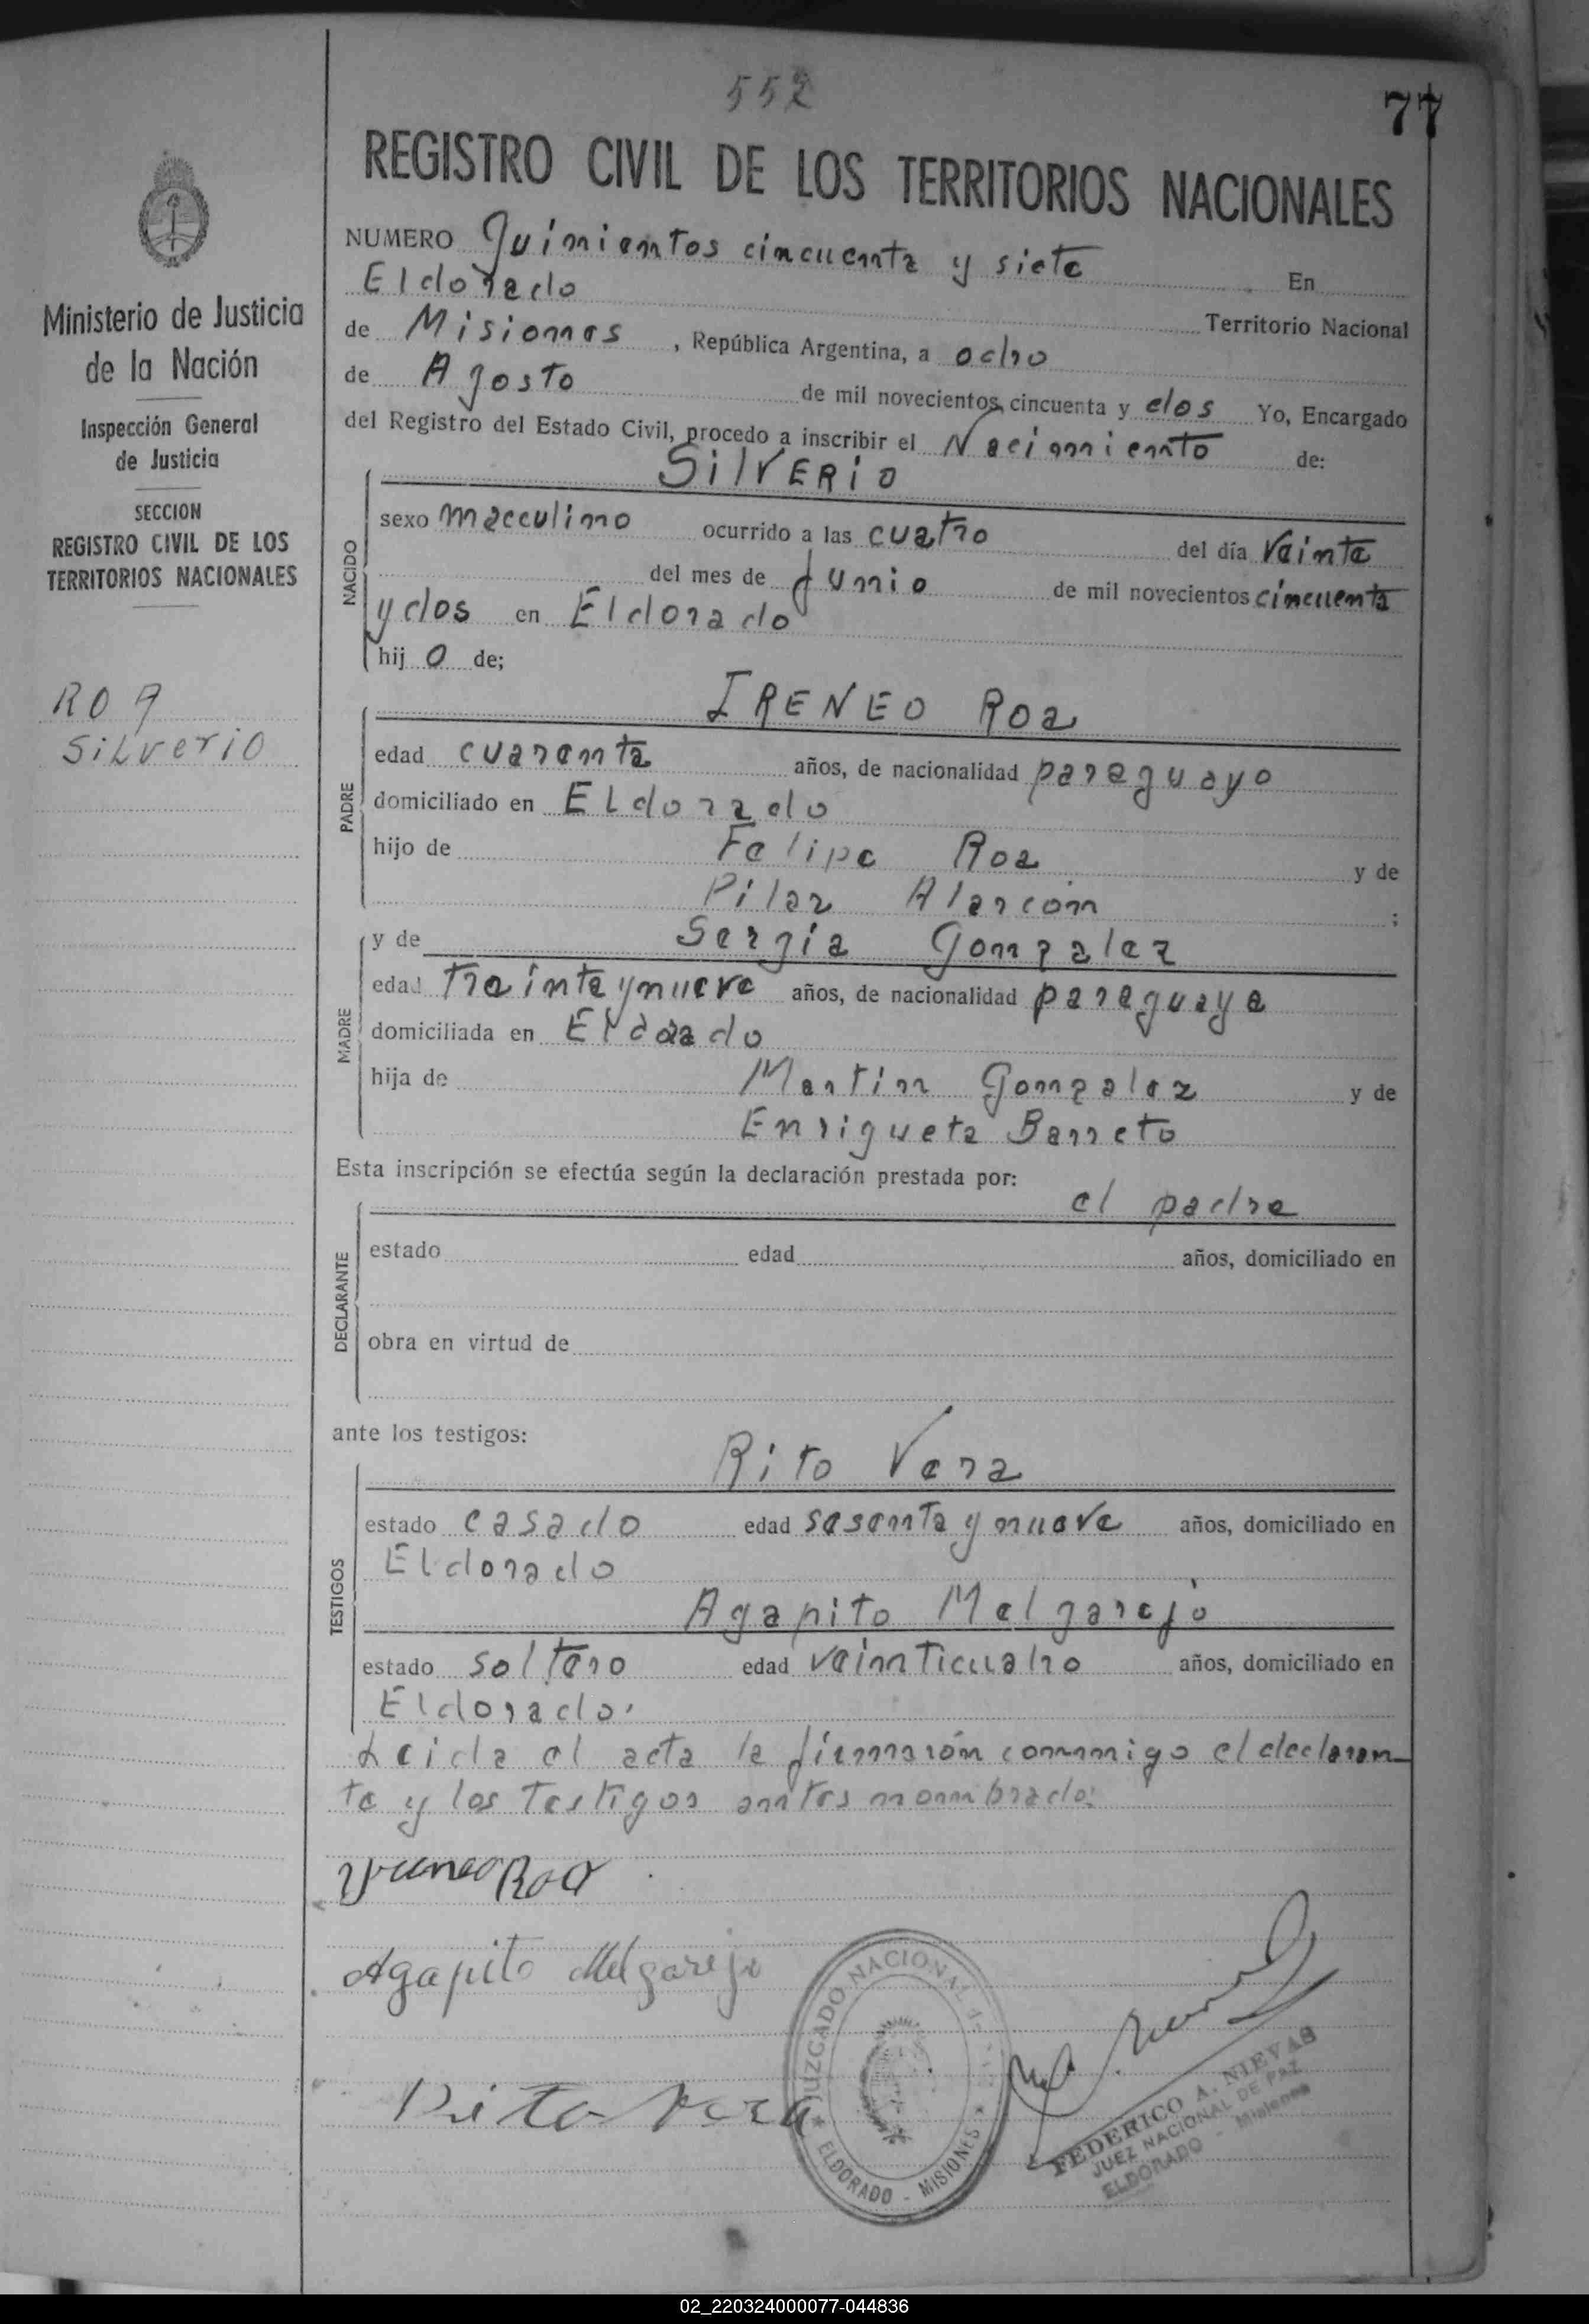 552
77
REGISTRO CIVIL DE LOS TERRITORIOS NACIONALES
Ministerio de Justicia
de la Nación
Inspección General
de Justicia
SECCION
REGISTRO CIVIL DE LOS
TERRITORIOS NACIONALES
ROA
SiLverio
NUMERO Quinientos cincuenta y siete En
Eldorado Territorio Nacional
de Misiones, República Argentina, a ocho
de Agosto de mil novecientos cincuenta y dos Yo, Encargado
del Registro del Estado Civil, procedo a inscribir el Nacimiento de:
NACIDO
SilVERio
sexo masculino ocurrido a las cuatro del día Veinte
del mes de Junio de mil novecientos cincuenta
y dos en Eldorado
hij o de;
PADRE
IRENEO Roa
edad cuarenta años, de nacionalidad paraguayo
domiciliado en ELdorado
hijo de Felipe Roa y de
Pilar Alarcón ;
MADRE
y de Sergia Gonzalez
edad Treinta y nueve años, de nacionalidad paraguaya
domiciliada en Eldorado
hija de Martin Gonzalez y de
Enriqueta Barreto
Esta inscripción se efectúa según la declaración prestada por:
DECLARANTE
el padre
estado edad años, domiciliado en
obra en virtud de
ante los testigos:
TESTIGOS
Rito Vera
estado casado edad sesenta y nueve años, domiciliado en
Eldorado
Agapito Melgarejo
estado soltero edad veinticuatro años, domiciliado en
Eldorado.
Leida el acta la firmarón conmigo el declaran-
te y los Testigos antes nombrado:
Yreneo Roa
Agapito Melgarejo
Rito Vera
JUZGADO NACIONAL
ELDORADO - MISIONES
FEDERICO A. NIEVAS
JUEZ NACIONAL DE PAZ
ELDORADO - Misiones
02_220324000077-044836